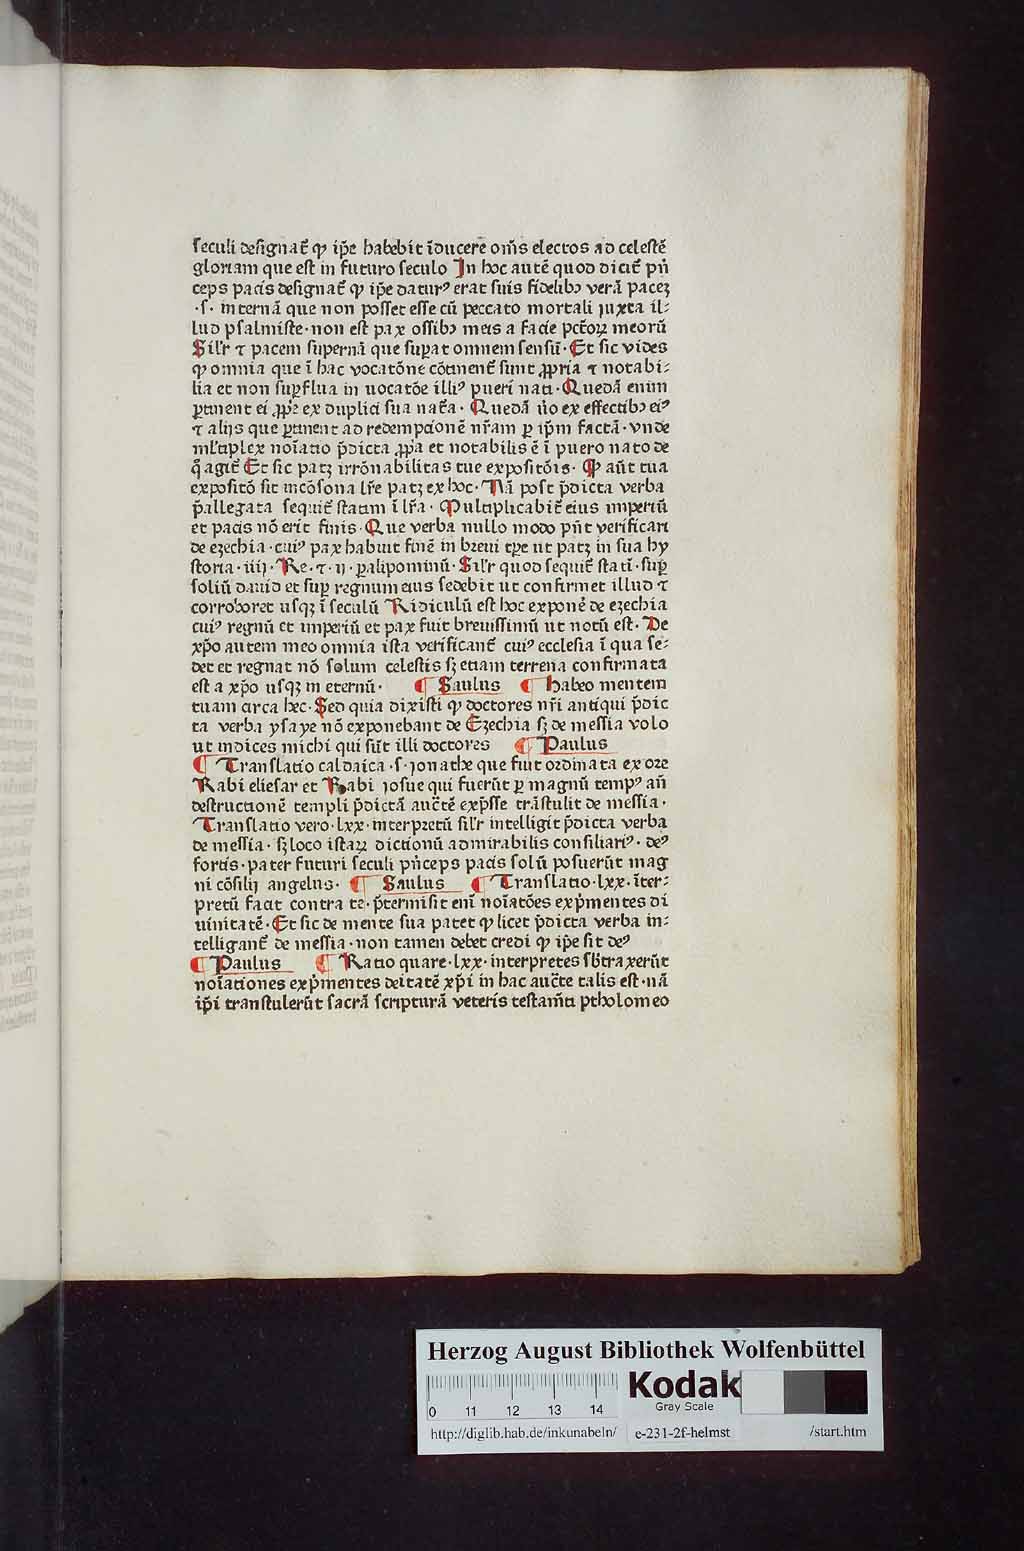 seculi designat̄ ꝙ ip̄e habebit īducere om̄s electos ad celestē
gloriam que est in futuro seculo In hoc autē quod dicit̄ pn̄
ceps pacis designat̄ ꝙ ip̄e daturꝰ erat suis fidelibꝫ verā pacez
·s· internā que non posset esse cū peccato mortali iuxta il⸗
lud psalmiste·non est pax ossibꝫ meis a facie pct̄oꝝ meorū
Sil'r ⁊ pacem supernā que suꝑat omnem sensū· Et sic vides
ꝙ omnia que ī hac vocatōne cōtinent̄ sunt ꝓpria ⁊ notabi⸗
lia et non suꝑflua in uocatōe illiꝰ pueri nati· Quedā enim
ꝑtinent ei ꝓp̄e ex duplici sua nat̄a· Quedā v̄o ex effectibꝫ eiꝰ
⁊ alijs que ꝑtinent ad redempcionē nr̄am ꝑ ip̄m factā· vnde
ml'tiplex noīatio p̄dicta ꝓp̄a et notabilis ē ī puero nato de
q̄ agit̄ Et sic patꝫ irrōnabilitas tue expositōis· Ꝙ aūt tua
expositō sit incōsona lr̄e patꝫ ex hoc· Nā post p̄dicta verba
p̄allegata sequit̄ statim ī lr̄a· Multiplicabit̄ eius imperiū
et pacis nō erit finis· Que verba nullo modo pn̄t verificari
de ezechia·cuiꝰ pax habuit finē in breui tp̄e ut patꝫ in sua hy
storia·iiij· Re· ⁊·ij· ꝑalipominū· Sil'r quod sequit̄ stati·̄ suꝑ
soliū dauid et suꝑ regnum eius sedebit ut confirmet illud ⁊
corroboret usqꝫ ī seculū Ridiculū est hoc exponē de ezechia
cuiꝰ regnū et imperiū et pax fuit breuissimū ut notū est· De
xp̄o autem meo omnia ista verificant̄ cuiꝰ ecclesia ī qua se⸗
det et regnat nō solum celestis sꝫ etiam terrena confirmata
est a xp̄o usqꝫ in eternū· ¶ Saulus ¶ Habeo mentem
tuam circa hec· Sed quia dixisti ꝙ doctores nr̄i antiqui p̄dic
ta verba ysaye nō exponebant de Ezechia sꝫ de messia volo
ut indices michi qui sūt illi doctores ¶ Paulus
¶ Translatio caldaica·s·jonathe que fuit ordinata ex ore
Rabi eliesar et Rabi josue qui fuerūt ꝑ magnū tempꝰ an̄
destructionē templi p̄dictā auct̄e exp̄sse trāstulit de messia·
Translatio vero·lxx·interpretū sil'r intelligit p̄dicta verba
de messia· sꝫ loco istaꝝ dictionū admirabilis consiliariꝰ· deꝰ
fortis·pater futuri seculi pn̄ceps pacis solū posuerūt mag
ni cōsilij angelus· ¶ Saulus ¶ Translatio·lxx·īter⸗
pretū facit contra te·p̄termisit enī noīatōes exp̄mentes di
uinitatē· Et sic de mente sua patet ꝙ licet p̄dicta verba in⸗
telligant̄ de messia·non tamen debet credi ꝙ ip̄e sit deꝰ
¶ Paulus ¶ Ratio quare·lxx·interpretes sb̄traxerūt
noīationes exp̄mentes deitatē xp̄i in hac auct̄e talis est·nā
ip̄i transtulerūt sacrā scripturā veteris testam̄ti ptholomeo
Herzog August Bibliothek Wolfenbüttel
Kodak
Gray Scale
0 11 12 13 14
http://diglib.hab.de/inkunabeln/ e-231-2f-helmst /start.htm